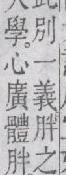 別一義胖之
學。心廣體胖